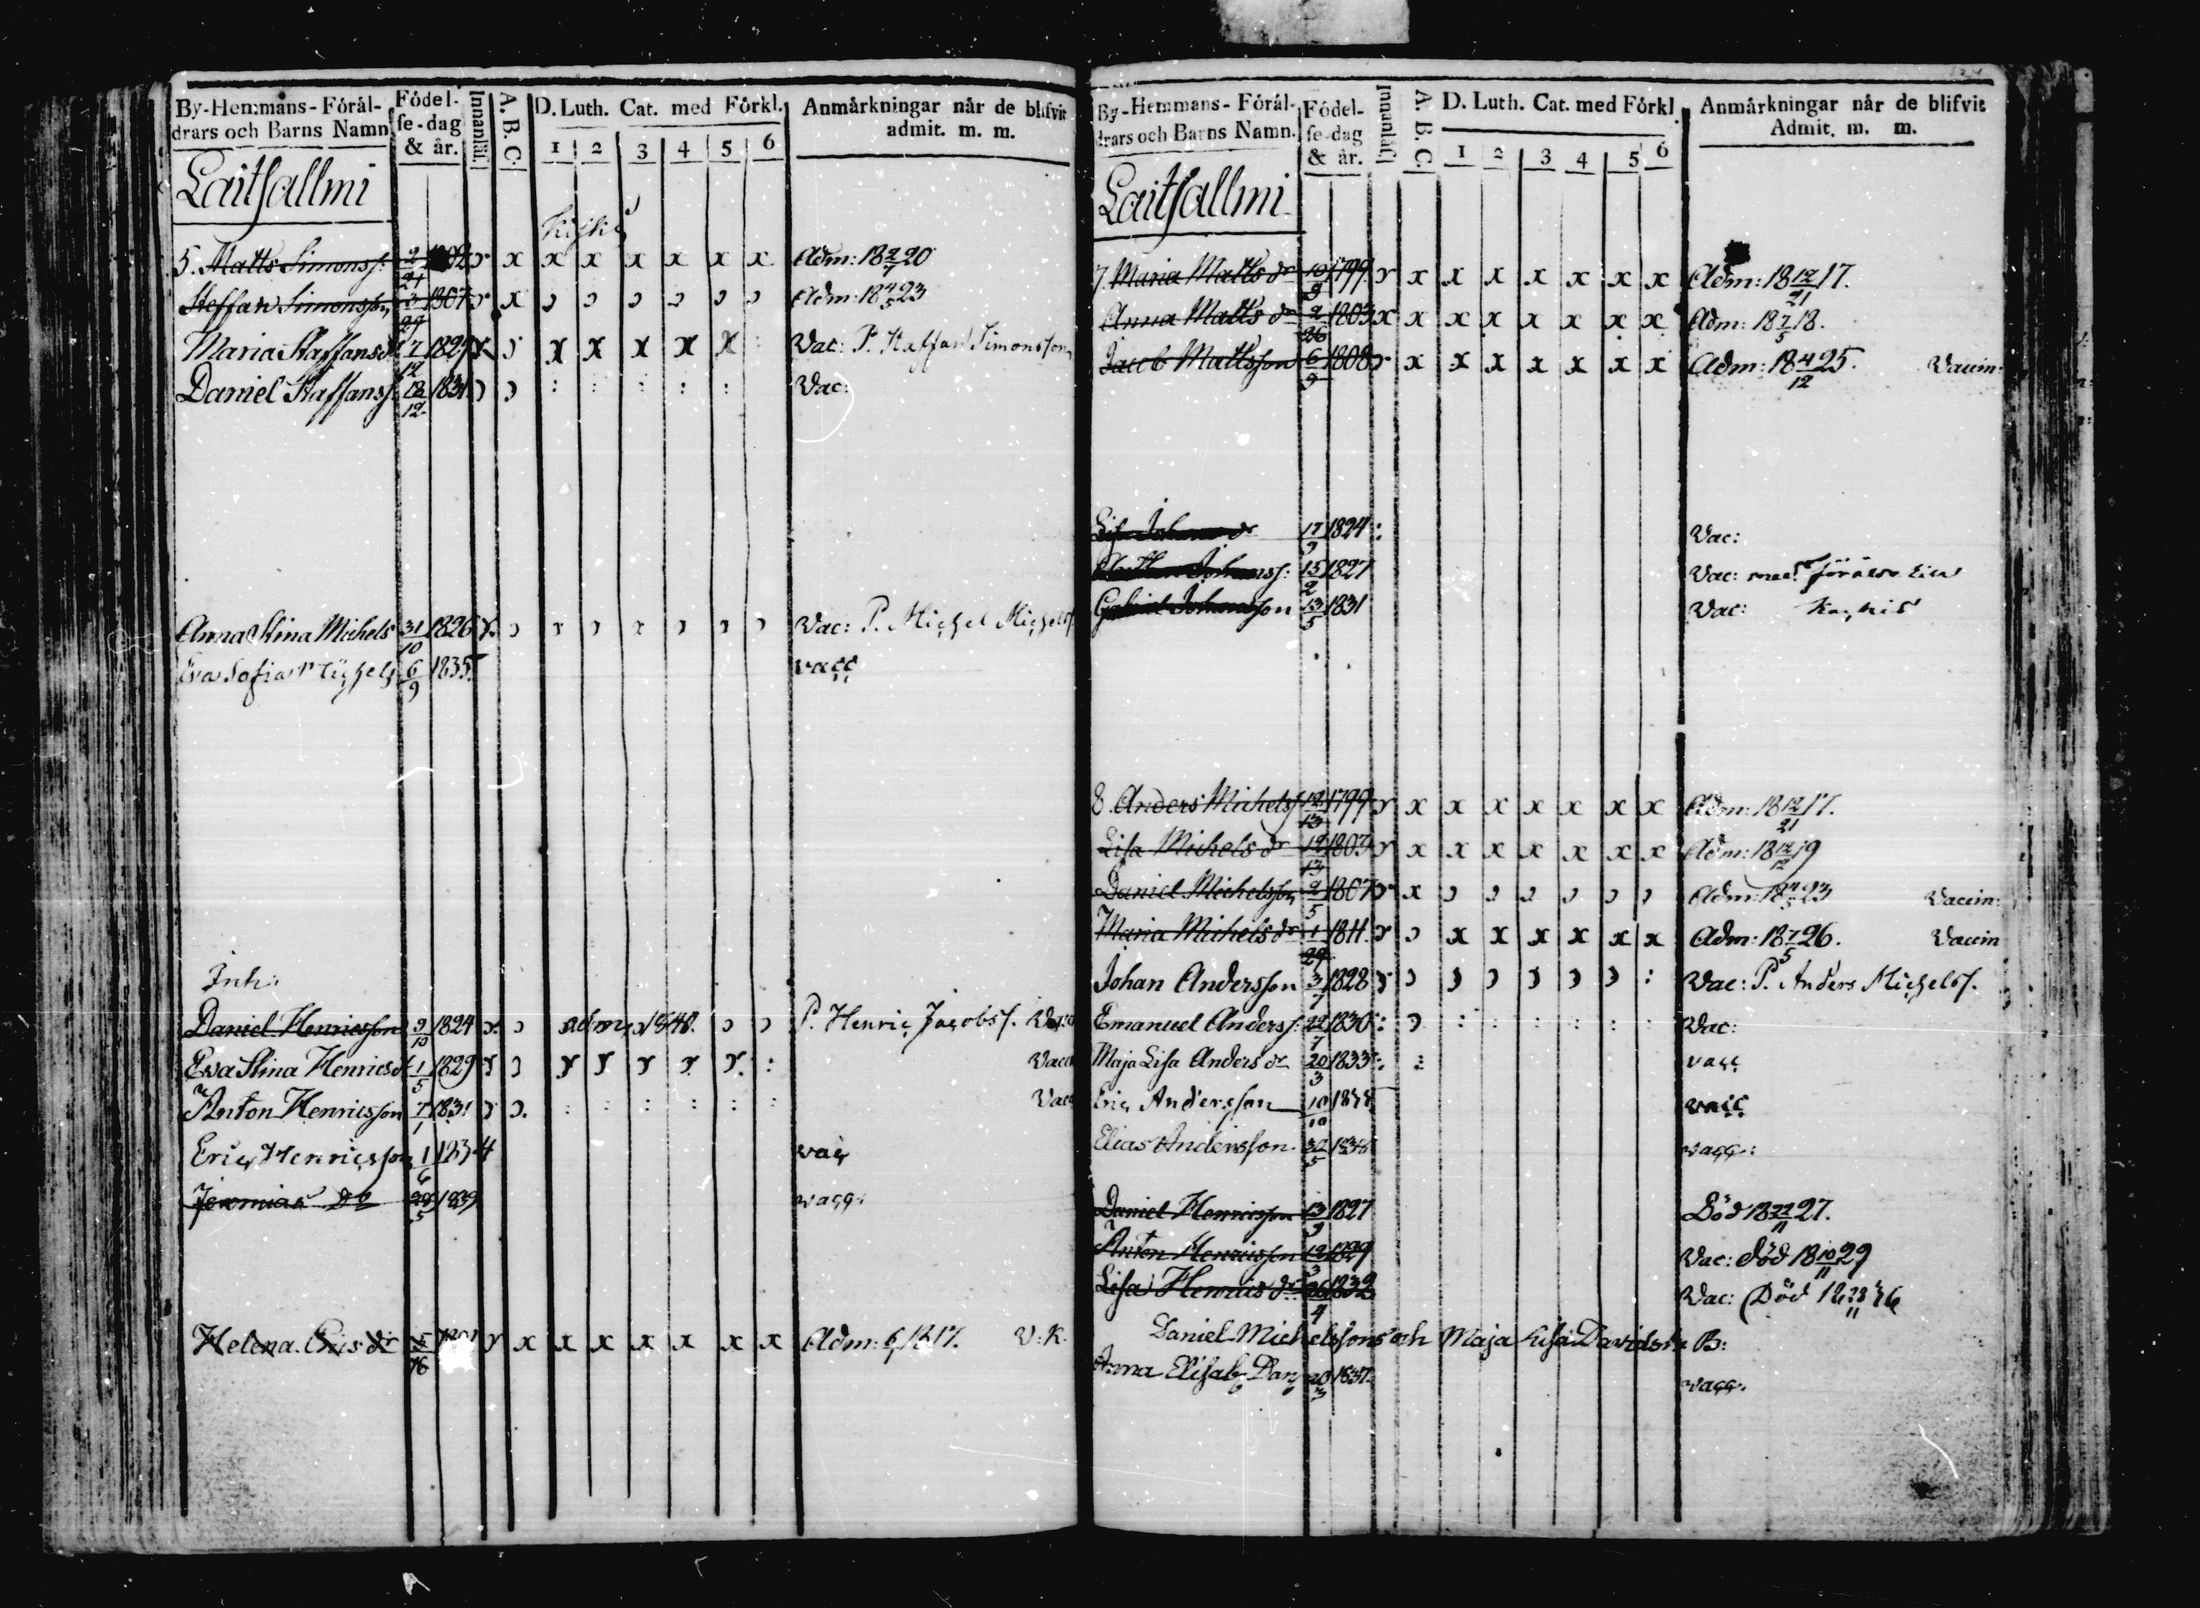 By-Hemmans-Föräl- Födel- Innanläs. A. B. C. D. Luth. Cat. med Förkl. Anmärkningar når de blifvit
drars och Barns Namn se-dag admit. m. m.
& år. 1 2 3 4 5 6
Laitsallmi
5. Matts Simonss: 2/21 1802 x x x x x x x Adm: 18 2/7 20
Staffan Simonsson 3/29 1807 x Adm: 18 4/5 23
Maria Staffansdr 7/12 1829 x x x x x Vac: P. Staffan Simonsson
Daniel Staffanss: 18/12 1831 : : : : : Vac:
Anna Stina Michels 31/10 1826 Vac: P. Michel Michelss
Eva Sofia Michels 6/9 1835 vacc
Inh:
Daniel Henricsson 9/10 1824 adm, 1848. P. Henric Jacobss.
Eva Stina Henricsd 1/5 1829 : Vacc
Anton Henricsson 7/1 1831 : : : : : : Vac
Eric Henricsson 1/6 1834 vac
Jeremias Do 28/5 1839 vacc.
Helena Erics dr 5/18 x x x x x x x Adm: 6/1 1817. V. K.
By-Hemmans-Föräl- Födel- Innanläs. A. B. C. D. Luth. Cat. med Förkl Anmärkningar når de blifvit
drars och Barns Namn. se-dag Admit. m. m.
& år. 1 2 3 4 5 6
Laitsallmi
7. Maria Matts dr 10/9 1799 x x x x x x x Adm: 18 12/21 17.
Anna Matts dr 2/26 1803 x x x x x x x x Adm: 18 7/5 18.
Jacob Mattsson 6/9 1808 x x x x x x x Adm: 18 4/12 25. Vaccin:
Lisa Johans dr 17/9 1824 : Vac:
Johanss: 15/2 1827 Vac: med
Gabriel Johansson 13/5 1831 Vac:
8. Anders Michelss 12/13 1799 x x x x x x x Adm: 18 12/21 17.
Lisa Michels dr 12/13 1803 x x x x x x x Adm: 18 12/12 19
Daniel Michelsson 2/5 1807 x Adm: 18 4/5 23 Vaccin:
Maria Michels dr 1/29 1811. x x x x x x Adm: 18 7/5 26. Vaccin
Johan Andersson 3/7 1828 : Vac: P. Anders Michelss.
Emanuel Anderss: 22/7 1830 : : : : : : : Vac:
Maja Lisa Anders dr 20/3 1833 : : vacc
Eric Andersson 10/10 vacc
Elias Andersson vacc:
Daniel Henricsson 13/9 1827 Död 18 22/11 27.
Anton Henricsson 12/3 1829 Vac: död 18 10/11 29
Lisa Henrics dr 26/4 1832 Vac: Död
Daniel Michelssons och Maja Lisa Davidsdr B:
Anna Elisab. Dan 20/3 1837. vacc.